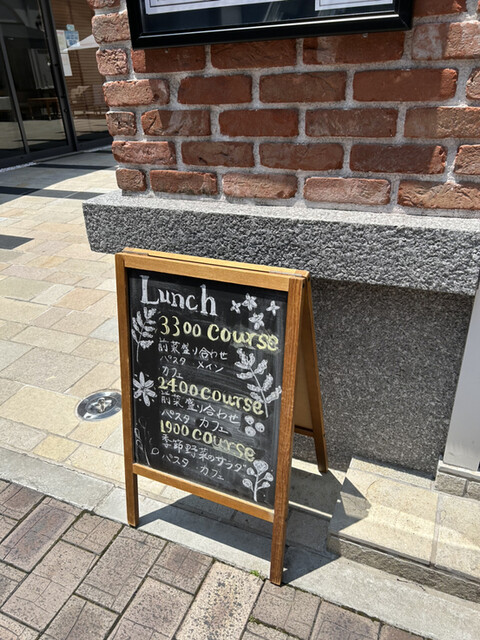 Lunch
3300 course
前菜盛り合わせ
パスタ メイン
カフェ
2400 course
前菜盛り合わせ
パスタ カフェ
1900 course
季節野菜のサラダ
パスタ カフェ